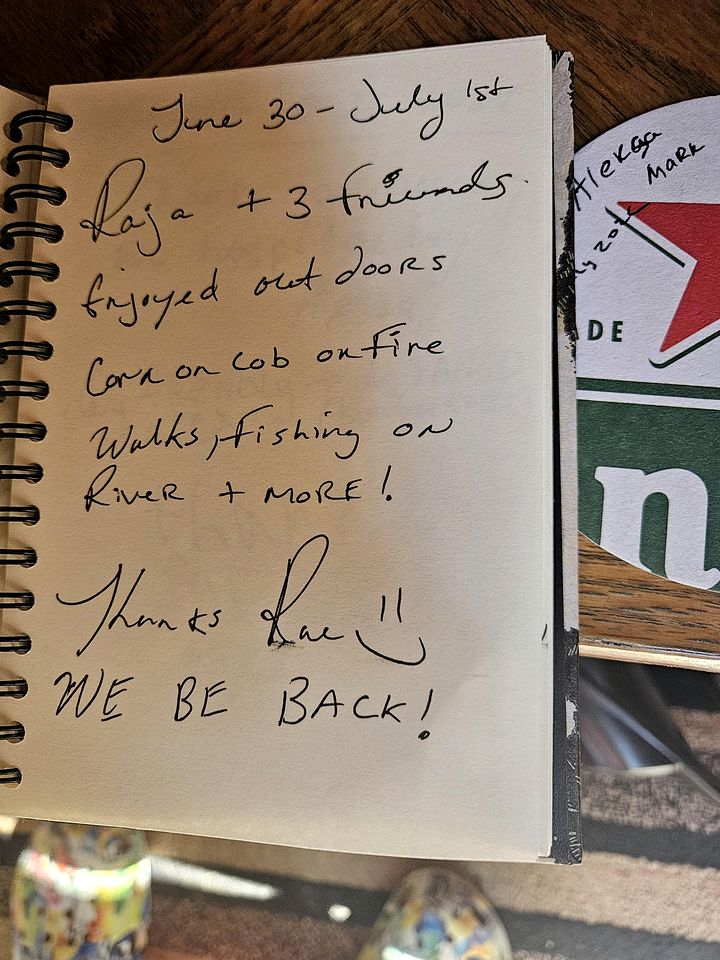 June 30 - July 1st
Raja + 3 friends.
Enjoyed outdoors
Corn on Cob on Fire
Walks, Fishing on
River + MORE!
Thanks Rae
WE BE BACK!
Mark
DE
n